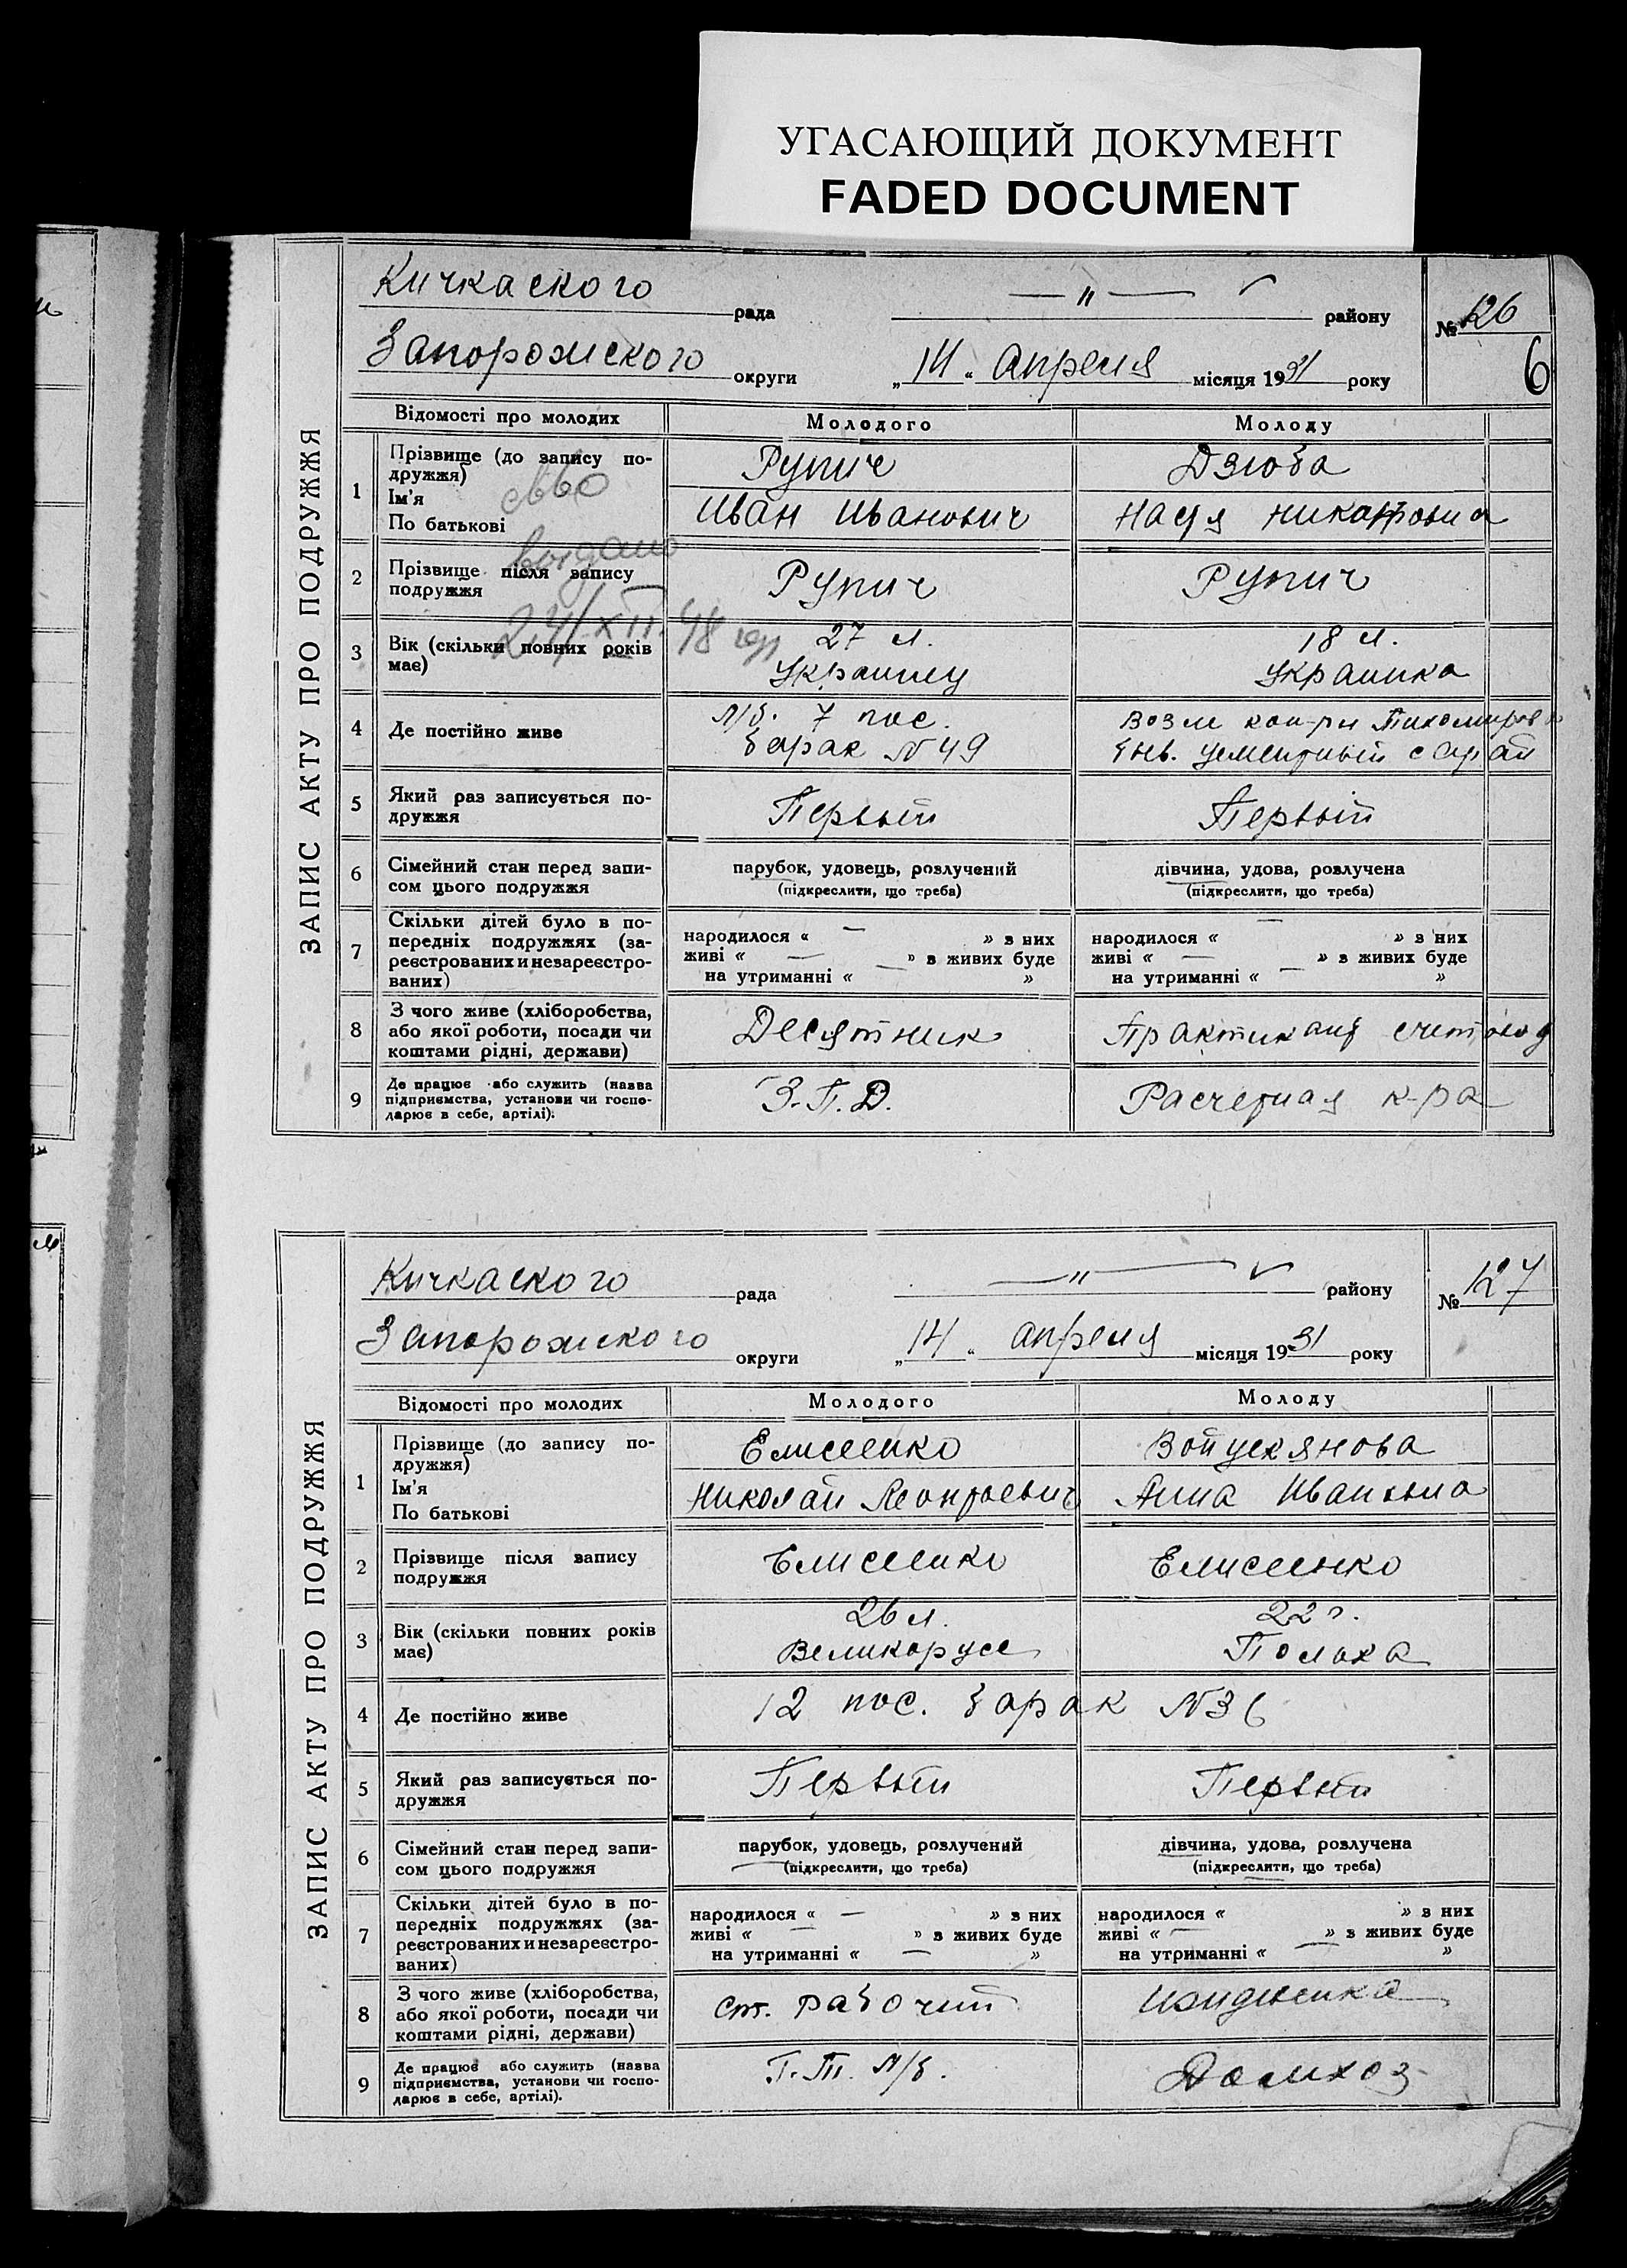 УГАСАЮЩИЙ ДОКУМЕНТ
FADED DOCUMENT
ЗАПИС АКТУ ПРО ПОДРУЖЖЯ
Кичкаского рада —"— району № 126
Запорожского округи „14“ апреля місяця 1931 року 6
Відомості про молодих Молодого Молоду
1 Прізвище (до запису по-
дружжя) Рупич Дзюба
Ім'я
По батькові Иван Иванович Настя Никаноровна
св-во
выдано
24/XII.48 г.
2 Прізвище після запису
подружжя Рупич Рупич
3 Вік (скільки повних років
має) 27 л. 18 л.
Украинец Украинка
4 Де постійно живе л/б. 7 пос. Возле кон-ры Тихомирова
барак №49 цементный сарай
5 Який раз записується по-
дружжя Первый Первый
6 Сімейний стан перед запи-
сом цього подружжя парубок, удовець, розлучений дівчина, удова, розлучена
(підкреслити, що треба) (підкреслити, що треба)
7 Скільки дітей було в по-
передніх подружжях (за-
реєстрованих и незареєстро-
ваних) народилося « — » з них народилося « — » з них
живі « — » в живих буде живі « — » в живих буде
на утриманні « — » на утриманні « — »
8 З чого живе (хліборобства,
або якої роботи, посади чи
коштами рідні, держави) Десятник Практикант счетовод
9 Де працює або служить (назва
підприємства, установи чи госпо-
дарює в себе, артілі). З.П.Д. Расчетная к-ра
ЗАПИС АКТУ ПРО ПОДРУЖЖЯ
Кичкаского рада —"— району № 127
Запорожского округи „14“ апреля місяця 1931 року
Відомості про молодих Молодого Молоду
1 Прізвище (до запису по-
дружжя) Елисеенко
Ім'я
По батькові Николай Леонтьевич Анна Ивановна
2 Прізвище після запису
подружжя Елисеенко Елисеенко
3 Вік (скільки повних років
має) 26 л. 22 г.
Великорусс Полька
4 Де постійно живе 12 пос. барак №36
5 Який раз записується по-
дружжя Первый Первый
6 Сімейний стан перед запи-
сом цього подружжя парубок, удовець, розлучений дівчина, удова, розлучена
(підкреслити, що треба) (підкреслити, що треба)
7 Скільки дітей було в по-
передніх подружжях (за-
реєстрованих и незареєстро-
ваних) народилося « — » з них народилося « — » з них
живі « — » в живих буде живі « — » в живих буде
на утриманні « — » на утриманні « — »
8 З чого живе (хліборобства,
або якої роботи, посади чи
коштами рідні, держави) ст. рабочий Иждивенка
9 Де працює або служить (назва
підприємства, установи чи госпо-
дарює в себе, артілі). Г.Т. л/б. Домхоз